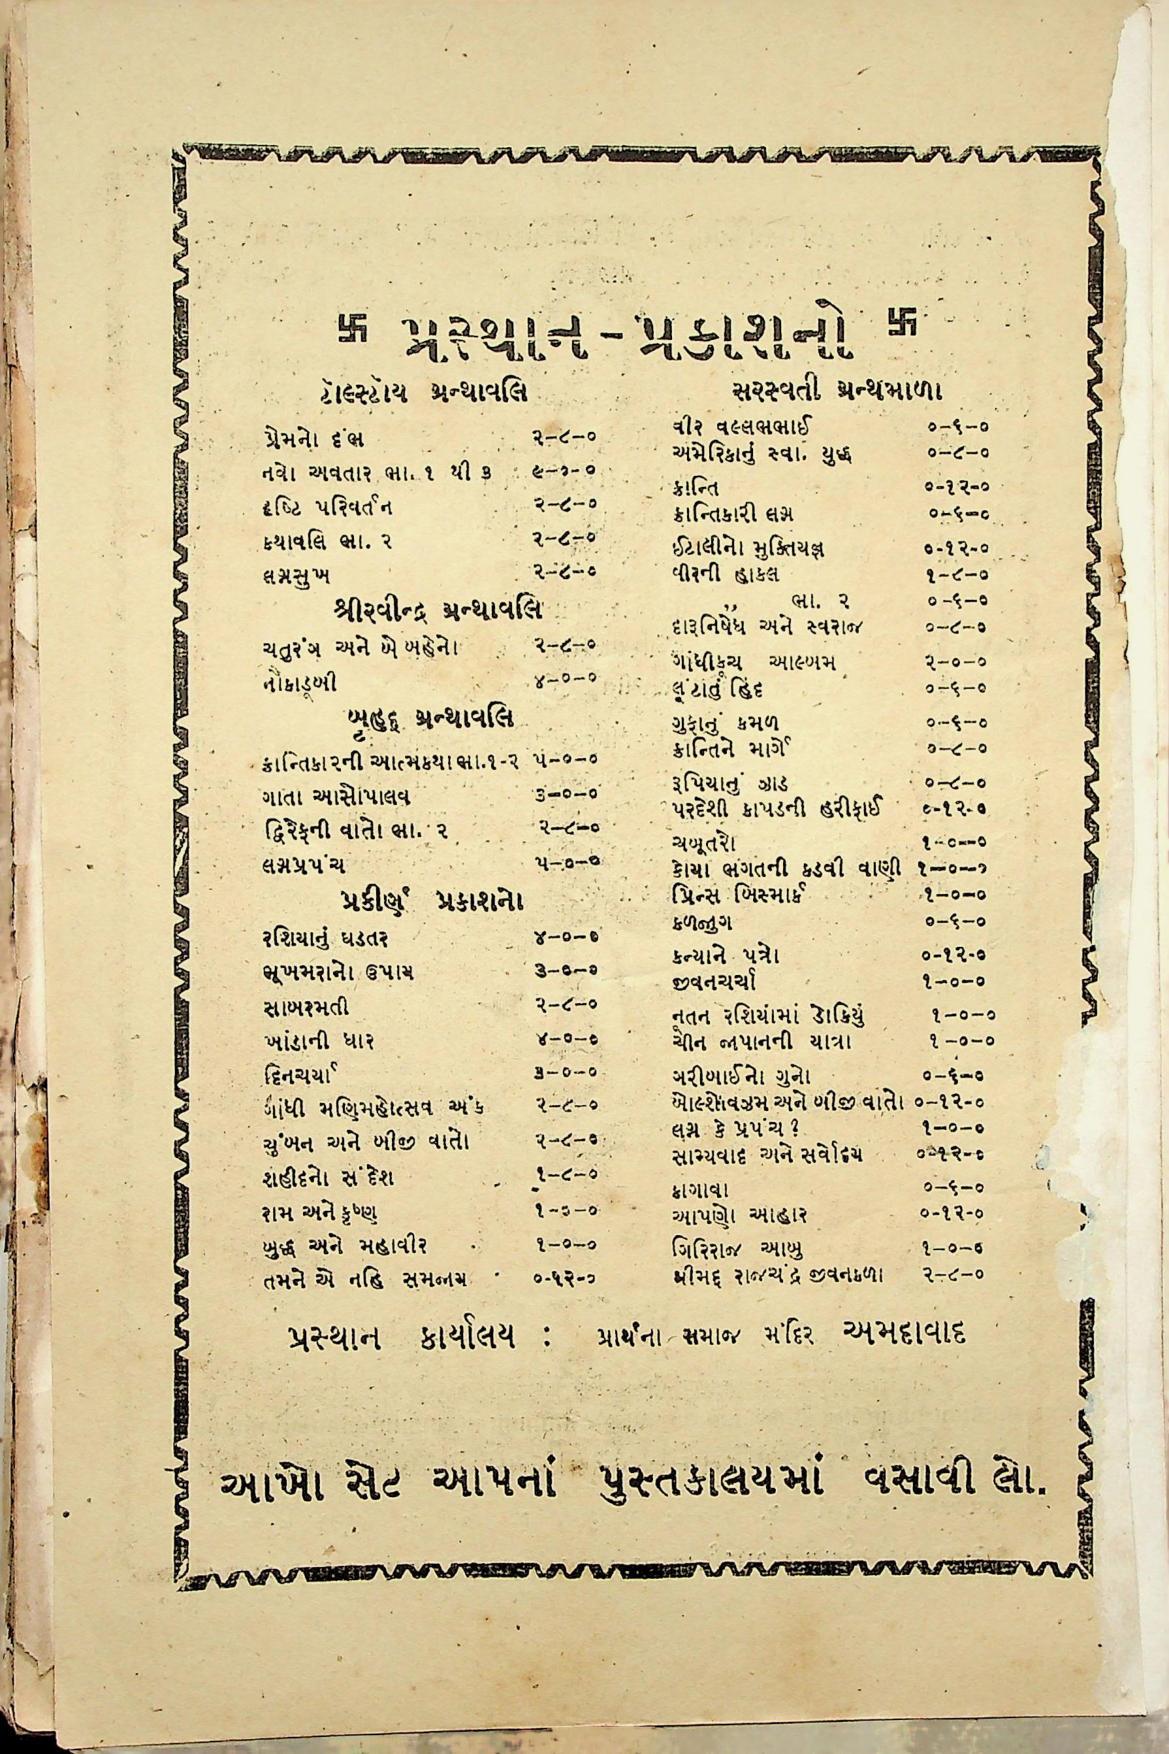 卐 પ્રસ્થાન-પ્રકાશનો 卐
ટૉલ્સ્ટૉય ગ્રન્થાવલિ
પ્રેમનો દંભ ૨-૮-૦
નવો અવતાર ભા. ૧ થી ૩ ૯-૦-૦
દૃષ્ટિ પરિવર્તન ૨-૮-૦
કથાવલિ ભા. ૨ ૨-૮-૦
લગ્નસુખ ૨-૮-૦
શ્રીરવીન્દ્ર ગ્રન્થાવલિ
ચતુરંગ અને બે બહેનો ૨-૮-૦
નૌકાડૂબી ૪-૦-૦
બૃહદ્ ગ્રન્થાવલિ
ક્રાન્તિકારની આત્મકથા ભા.૧-૨ ૫-૦-૦
ગાતા આસોપાલવ ૩-૦-૦
દ્વિરેફની વાતો ભા. ૨ ૨-૮-૦
લગ્નપ્રપંચ ૫-૦-૦
પ્રકીર્ણ પ્રકાશનો
રશિયાનું ઘડતર ૪-૦-૦
ભૂખમરાનો ઉપાય ૩-૦-૦
સાબરમતી ૨-૮-૦
ખાંડાની ધાર ૪-૦-૦
દિનચર્યા ૩-૦-૦
ગાંધી મણિમહોત્સવ અંક ૨-૮-૦
ચુંબન અને બીજી વાતો ૨-૮-૦
શહીદનો સંદેશ ૧-૮-૦
રામ અને કૃષ્ણ ૧-૦-૦
બુદ્ધ અને મહાવીર ૧-૦-૦
તમને એ નહિ સમજાય ૦-૧૨-૦
સરસ્વતી ગ્રન્થમાળા
વીર વલ્લભભાઈ ૦-૬-૦
અમેરિકાનું સ્વા. યુદ્ધ ૦-૮-૦
ક્રાન્તિ ૦-૧૨-૦
ક્રાન્તિકારી લગ્ન ૦-૬-૦
ઈટાલીનો મુક્તિયજ્ઞ ૦-૧૨-૦
વીરની હાકલ ૧-૮-૦
,, ભા. ૨ ૦-૬-૦
દારૂનિષેધ અને સ્વરાજ ૦-૮-૦
ગાંધીકૂચ આલ્બમ ૨-૦-૦
લૂંટાતું હિંદ ૦-૬-૦
ગુફાનું કમળ ૦-૬-૦
ક્રાન્તિને માર્ગે ૦-૮-૦
રૂપિયાનું ઝાડ ૦-૮-૦
પરદેશી કાપડની હરીફાઈ ૦-૧૨-૦
ચબૂતરો ૧-૦-૦
કોયા ભગતની કડવી વાણી ૧-૦-૦
પ્રિન્સ બિસ્માર્ક ૧-૦-૦
કળજુગ ૦-૬-૦
કન્યાને પત્રો ૦-૧૨-૦
જીવનચર્ચા ૧-૦-૦
નૂતન રશિયામાં ડોકિયું ૧-૦-૦
ચીન જાપાનની યાત્રા ૧-૦-૦
ગરીબાઈનો ગુનો ૦-૬-૦
બોલ્શેવિઝમ અને બીજી વાતો ૦-૧૨-૦
લગ્ન કે પ્રપંચ? ૧-૦-૦
સામ્યવાદ અને સર્વોદય ૦-૧૨-૦
કાગાવા ૦-૬-૦
આપણો આહાર ૦-૧૨-૦
ગિરિરાજ આબુ ૧-૦-૦
શ્રીમદ્ રાજચંદ્ર જીવનકળા ૨-૮-૦
પ્રસ્થાન કાર્યાલય : પ્રાર્થના સમાજ મંદિર અમદાવાદ
આખો સેટ આપનાં પુસ્તકાલયમાં વસાવી લો.